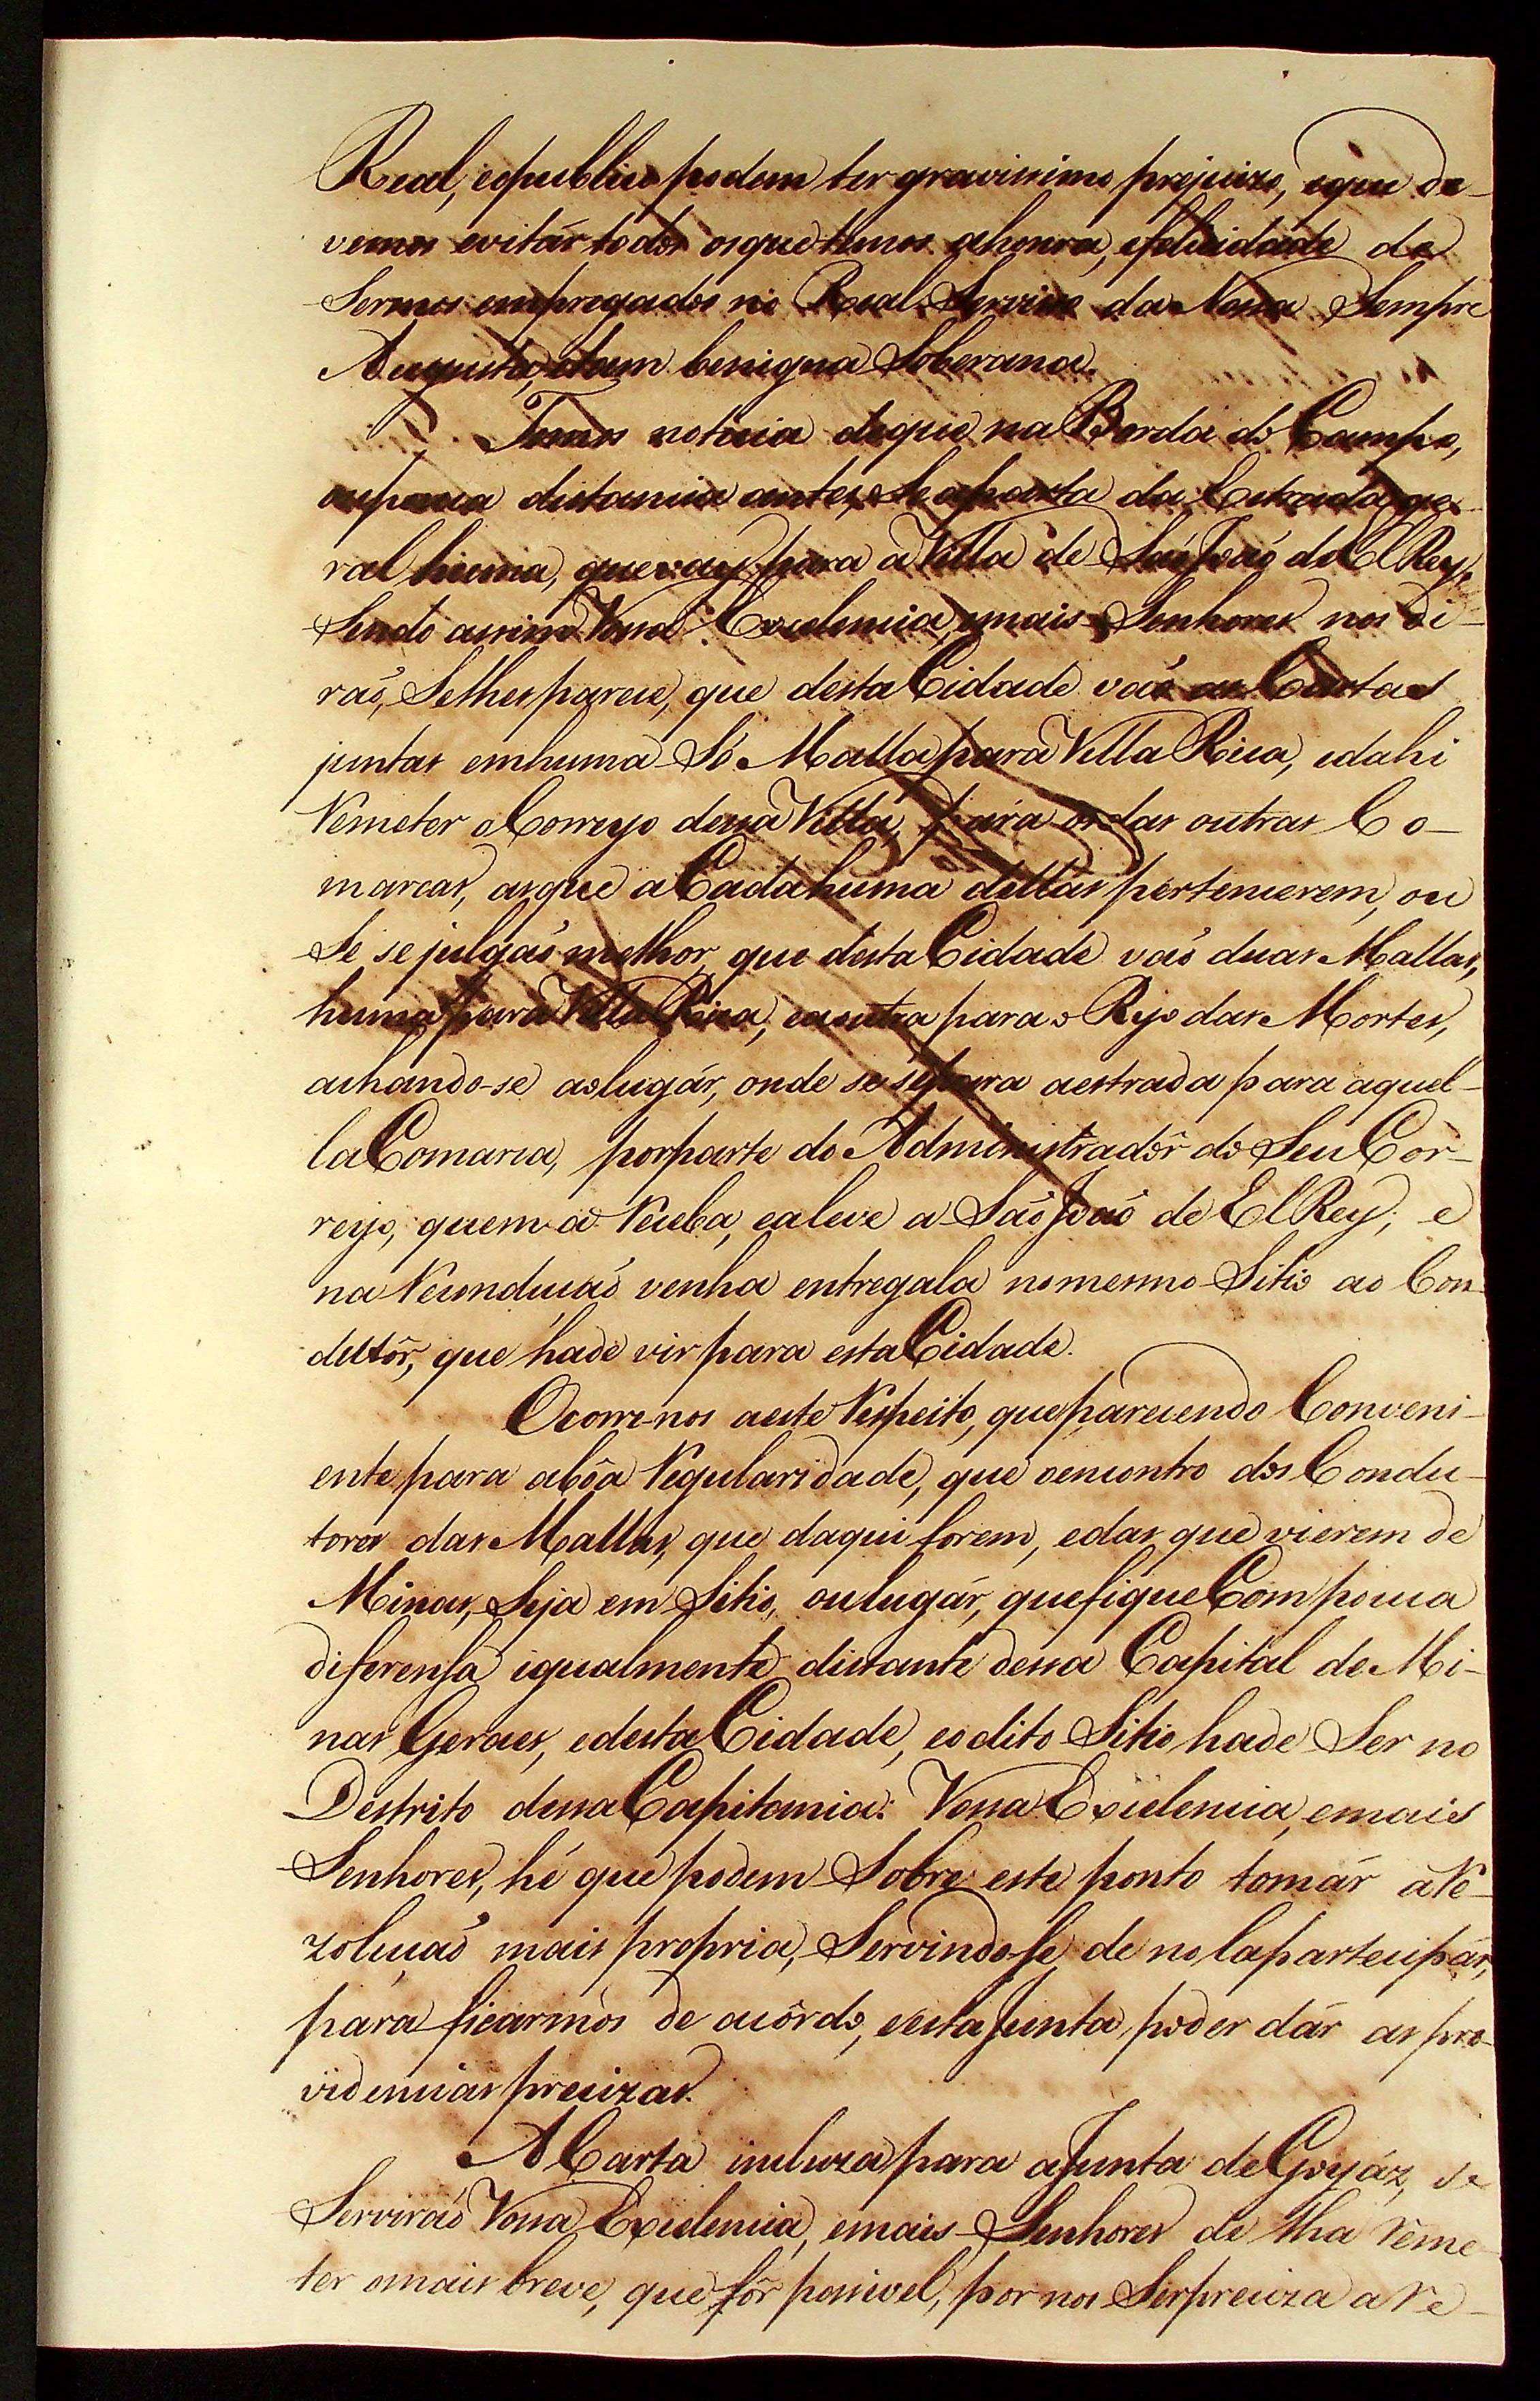 Real, e publico podem ter gravissimo prejuizo, e que de-
vemos evitár todos os que temos a honra, e felicidade de
Sermos empregados no Real Serviço da Nossa Sempre
Augusta, e tam benigna Soberana.
Temos noticia de que na Borda do Campo,
ou pouca distancia antes, Se aparta da Estrada ge-
ral huma, que vay para a Villa de Saó Joaó de El Rey,
Sendo assim Vossa Excelencia, e mais Senhores nos di-
raó, Se lhes parece, que desta Cidade vaó as Cartas
juntas em huma Só Malla para Villa Rica, e dahi
Remeter o Correyo dessa Villa, para os das outras Co-
marcas, as que a Cada huma dellas pertencerem, ou
Se se julgaó melhor, que desta Cidade vaó duas Mallas,
huma para Villa Rica, e a outra para o Ryo das Mortes,
achando-se ao lugár, onde se separa a estrada para aquel-
la Comarca, por parte do Administradôr do Seu Cor-
reyo, quem a Receba, e a leve a Saó Joaó de El Rey; e
na Reconduçaó venha entregala no mesmo Sitio ao Con-
dutôr, que hade vir para esta Cidade.
Ocorre-nos a este Respeito, que parecendo Conveni-
ente para a bôa Regularidade, que o encontro dos Condu-
tores das Mallas, que daqui forem, e das que vierem de
Minas, Seja em Sitio, ou lugár, que fique Com pouca
diferensa igualmente distante dessa Capital de Mi-
nas Geraes, e desta Cidade, e o dito Sitio hade Ser no
Destrito dessa Capitania: Vossa Excelencia, e mais
Senhores, hé que podem Sobre este ponto tomár a Re-
zoluçaó mais propria, Servindo-se de nola partecipár,
para ficarmos de acôrdo, e esta Junta poder dár as pro-
videncias precizas.
A Carta incluza para a Junta de Goyáz, se
Serviraó Vossa Excelencia, e mais Senhores de lha reme-
ter o mais breve, que fôr possivel, por nos Ser preciza a Re-